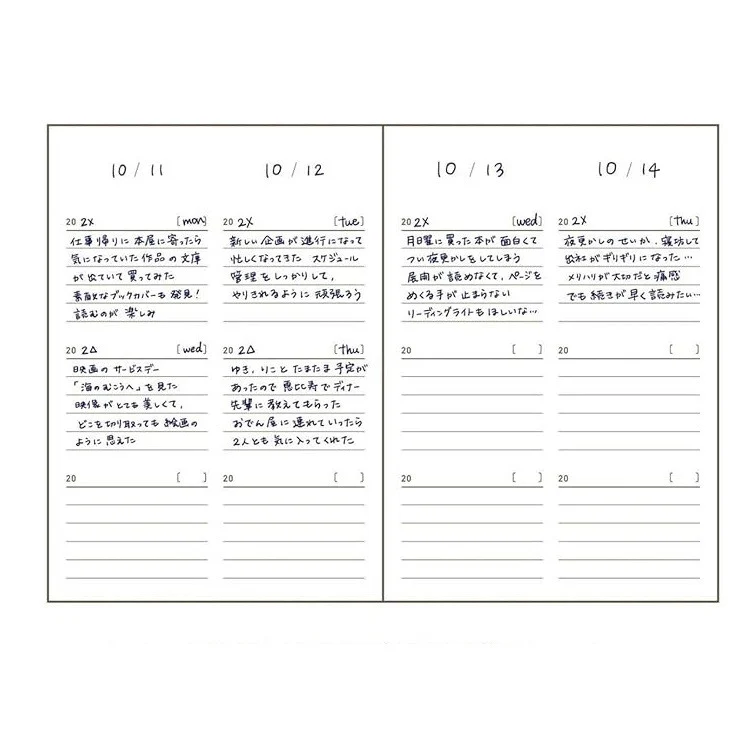 10 / 11
20 2X [mon]
仕事帰りに本屋に寄ったら
気になっていた作品の文庫
が出ていて買ってみた
素敵なブックカバーも発見!
読むのが楽しみ
20 2△ [wed]
映画のサービスデー
「海のむこうへ」を見た
映像がとても美しくて、
どこを切り取っても絵画の
ように思えた
20 [ ]
10 / 12
20 2X [tue]
新しい企画が進行になって
忙しくなってきた スケジュール
管理をしっかりして、
やりきれるように頑張ろう
20 2△ [thu]
ゆき、りことたまたま予定が
あったので恵比寿でディナー
先輩に教えてもらった
おでん屋に連れていったら
2人とも気に入ってくれた
20 [ ]
10 / 13
20 2X [wed]
月曜に買った本が面白くて
つい夜更かしをしてしまう
展開が読めなくて、ページを
めくる手が止まらない
リーディングライトもほしいな…
20 [ ]
20 [ ]
10 / 14
20 2X [thu]
夜更かしのせいか、寝坊して
出社がギリギリになった…
メリハリが大切だと痛感
でも続きが早く読みたい…
20 [ ]
20 [ ]